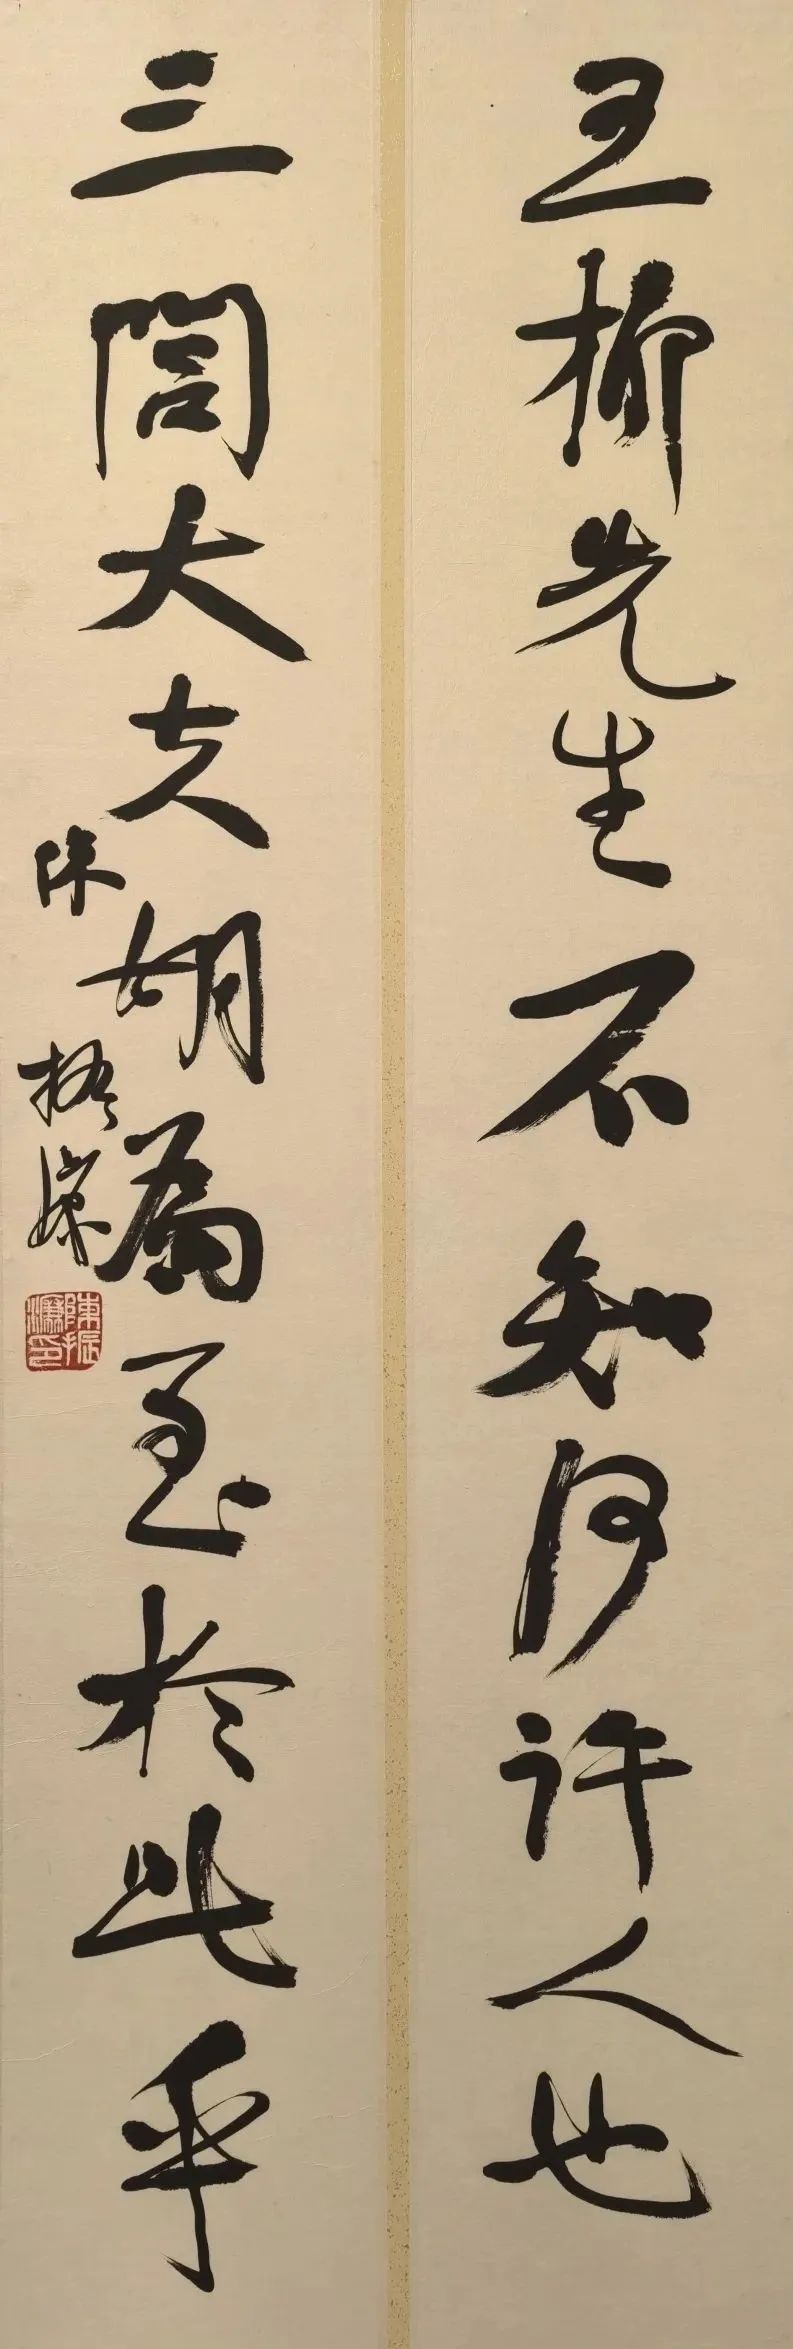 五柳先生不知何許人也
三閭大夫胡為至於此乎
陳振濂
陳振濂印